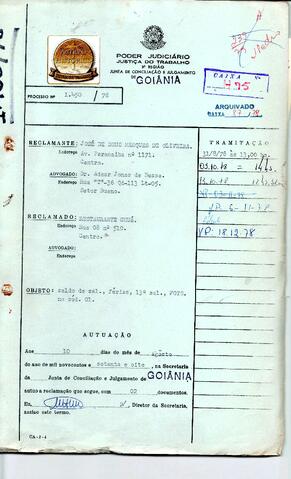 PODER JUDICIÁRIO
JUSTIÇA DO TRABALHO
3ª REGIÃO
JUNTA DE CONCILIAÇÃO E JULGAMENTO
DE GOIÂNIA
PROCESSO Nº 1.450 / 78
CAIXA
ARQUIVADO
CAIXA 87 / 78
RECLAMANTE: JOSÉ DE DEUS MARQUES DE OLIVEIRA.
Endereço Av. Paranaíba nº 1171.
Centro.
ADVOGADO: Dr.
Endereço Rua "T"-36 Qd-113 Lt-05.
Setor Bueno.
RECLAMADO: RESTAURANTE
Endereço Rua 08 nº 510.
Centro.
ADVOGADO:
Endereço
OBJETO: saldo de sal., férias, 13º sal., FGTS.
no cód. 01.
TRAMITAÇÃO
31/8/78 às 13,00
05.10.78
VP. 6-11-78
VP. 18.12.78
AUTUAÇÃO
Aos 10 dias do mês de agosto
do ano de mil novecentos e setenta e oito, na Secretaria
da Junta de Conciliação e Julgamento de GOIÂNIA
autuo a reclamação que segue, com 02 documentos.
Eu, Diretor da Secretaria,
assino este termo.
CA-1-4